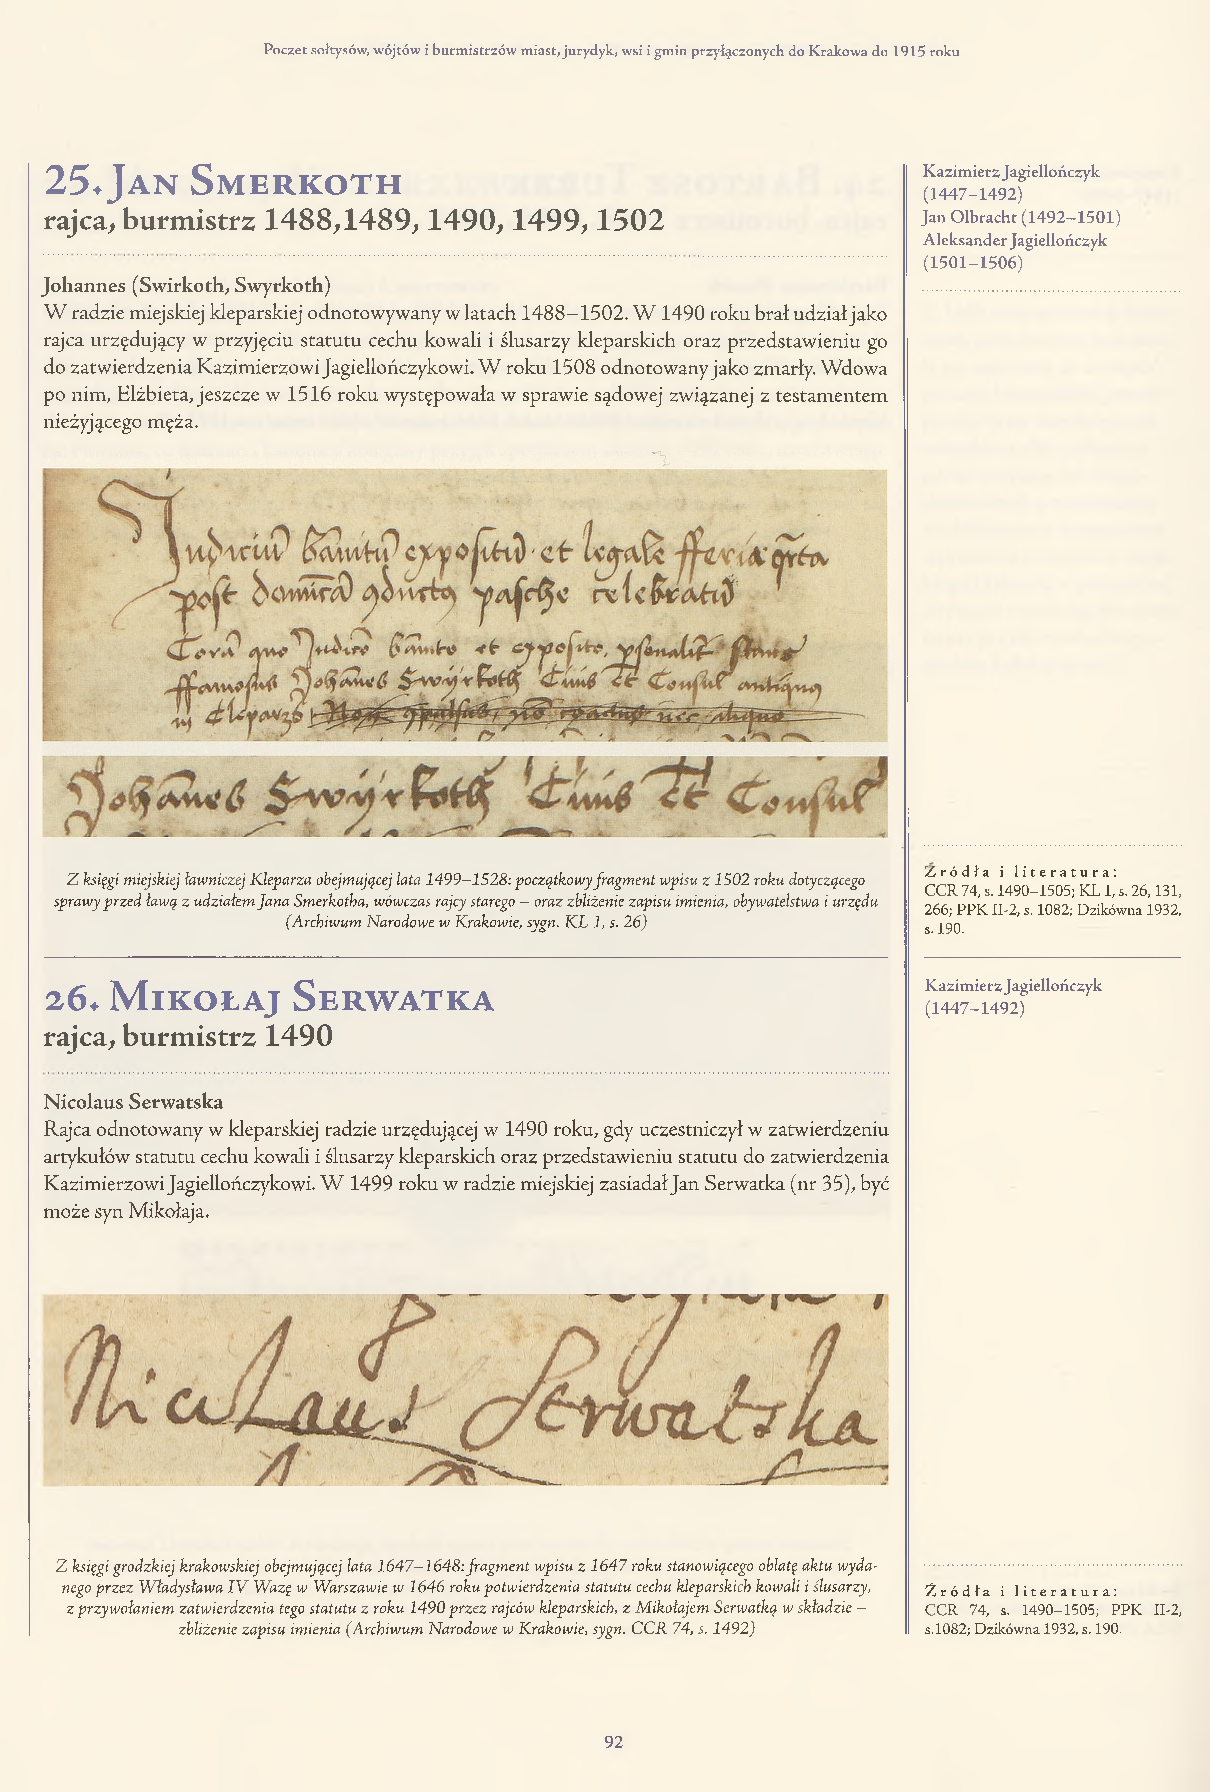 Poczet sołtysów, wójtów i burmistrzów miast, jurydyk, wsi i gmin przyłączonych do Krakowa do 1915 roku
25. Jan Smerkoth
rajca, burmistrz 1488,1489, 1490, 1499, 1502
Johannes (Swirkoth, Swyrkoth)
W radzie miejskiej kleparskiej odnotowywany w latach 1488–1502. W 1490 roku brał udział jako
rajca urzędujący w przyjęciu statutu cechu kowali i ślusarzy kleparskich oraz przedstawieniu go
do zatwierdzenia Kazimierzowi Jagiellończykowi. W roku 1508 odnotowany jako zmarły. Wdowa
po nim, Elżbieta, jeszcze w 1516 roku występowała w sprawie sądowej związanej z testamentem
nieżyjącego męża.
Kazimierz Jagiellończyk
(1447–1492)
Jan Olbracht (1492–1501)
Aleksander Jagiellończyk
(1501–1506)
Judiciu bannitu expositu et legale fferia qrta
post domica 9duct9 pasche celebratu
Cora quo Judicio bannito et exposito, psonalit stans
ffamosus Johanes Swyrkoth Ciuis et Consul antiquus
in Cleparz
Johanes Swyrkoth Ciuis et Consul
Z księgi miejskiej ławniczej Kleparza obejmującej lata 1499–1528: początkowy fragment wpisu z 1502 roku dotyczącego
sprawy przed ławą z udziałem Jana Smerkotha, wówczas rajcy starego – oraz zbliżenie zapisu imienia, obywatelstwa i urzędu
(Archiwum Narodowe w Krakowie, sygn. KL 1, s. 26)
Źródła i literatura:
CCR 74, s. 1490–1505; KL 1, s. 26, 131,
266; PPK II-2, s. 1082; Dzikówna 1932,
s. 190.
26. Mikołaj Serwatka
rajca, burmistrz 1490
Nicolaus Serwatska
Rajca odnotowany w kleparskiej radzie urzędującej w 1490 roku, gdy uczestniczył w zatwierdzeniu
artykułów statutu cechu kowali i ślusarzy kleparskich oraz przedstawieniu statutu do zatwierdzenia
Kazimierzowi Jagiellończykowi. W 1499 roku w radzie miejskiej zasiadał Jan Serwatka (nr 35), być
może syn Mikołaja.
Kazimierz Jagiellończyk
(1447–1492)
Nicolaus Serwatska
Z księgi grodzkiej krakowskiej obejmującej lata 1647–1648: fragment wpisu z 1647 roku stanowiącego oblatę aktu wyda-
nego przez Władysława IV Wazę w Warszawie w 1646 roku potwierdzenia statutu cechu kleparskich kowali i ślusarzy,
z przywołaniem zatwierdzenia tego statutu z roku 1490 przez rajców kleparskich, z Mikołajem Serwatką w składzie –
zbliżenie zapisu imienia (Archiwum Narodowe w Krakowie, sygn. CCR 74, s. 1492)
Źródła i literatura:
CCR 74, s. 1490–1505; PPK II-2,
s.1082; Dzikówna 1932, s. 190.
92